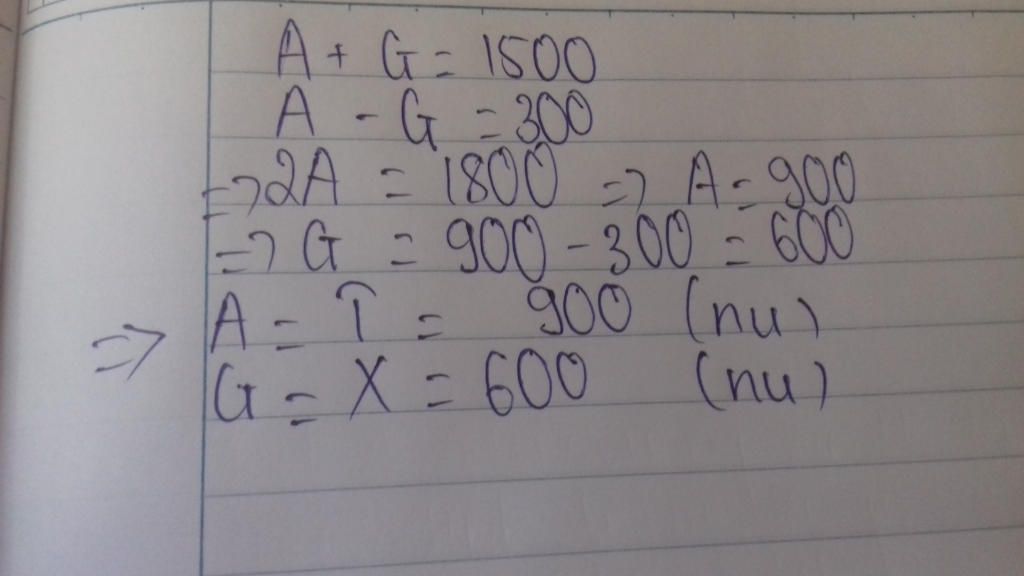 A + G = 1500
A - G = 300
=> 2A = 1800 => A = 900
=> G = 900 - 300 = 600
=> A = T = 900 (nu)
G = X = 600 (nu)